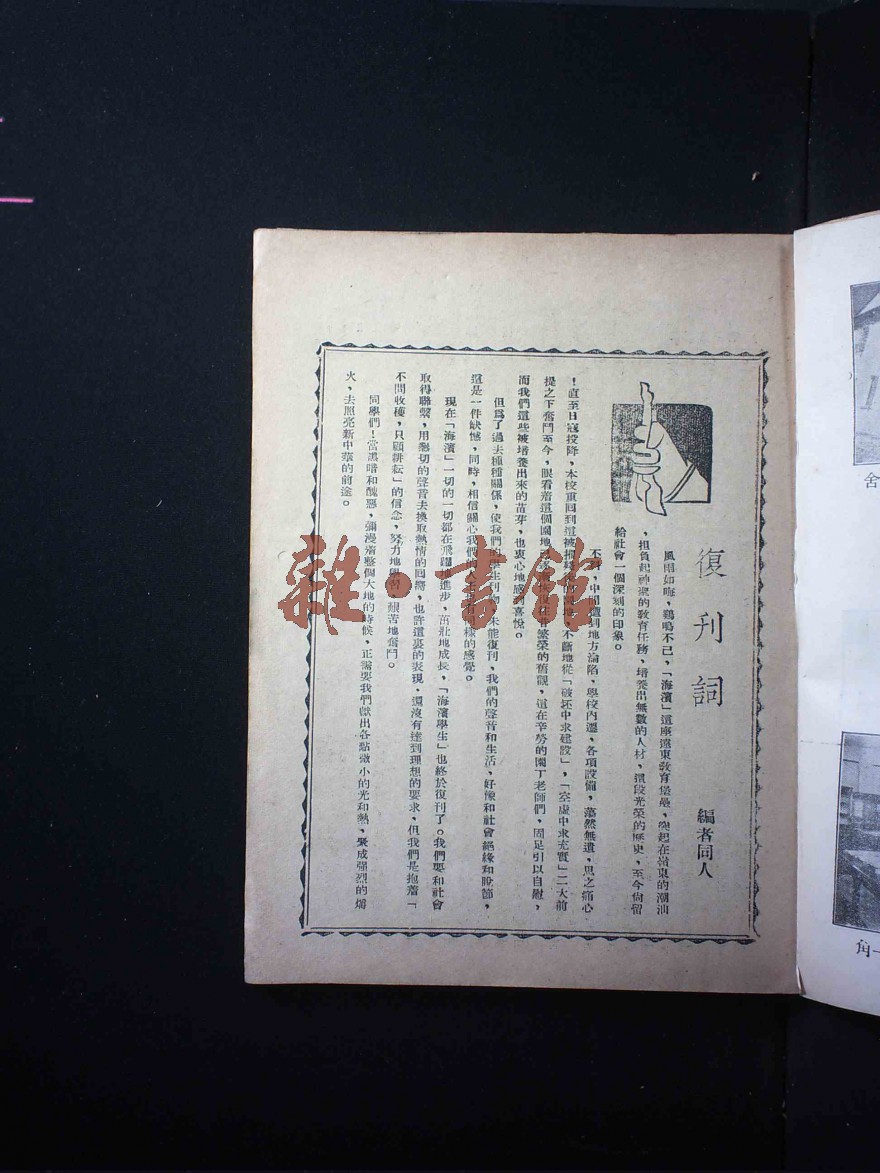 復刊詞
編者同人
風雨如晦，鷄鳴不已，「海濱」這座遠東教育堡壘，突起在嶺東的潮汕
，担負起神聖的教育任務，培養出無數的人材，這段光榮的歷史，至今尚留
給社會一個深刻的印象。
不料，中間遭到地方淪陷，學校內遷，各項設備，蕩然無遺，思之痛心
！直至日寇投降，本校重回到這被摧殘後的，不斷地從「破坏中求建設」，「空虛中求充實」二大前
提之下奮鬥至今，眼看着這個園地繁榮的舊觀，這在辛勞的園丁老師們，固足引以自慰，
而我們這些被培養出來的苗芽，也衷心地感到喜悅。
但爲了過去種種關係，使我們的學生刊物，未能復刊，我們的聲音和生活，好像和社會絕緣和脫節，
這是一件缺憾，同時，相信關心我們的同樣的感覺。
現在「海濱」一切的一切都在飛躍地進步，茁壯地成長，「海濱學生」也終於復刊了。我們要和社會
取得聯繫，用熱切的聲音去換取熱情的回響，也許這裏的表現，還沒有達到理想的要求，但我們是抱着「
不問收穫，只顧耕耘」的信念，努力地學習，艱苦地奮鬥。
同學們！當黑暗和醜惡，彌漫着整個大地的時候，正需要我們獻出各點微小的光和熱，聚成强烈的熖
火，去照亮新中華的前途。
雜·書館
舍
角一